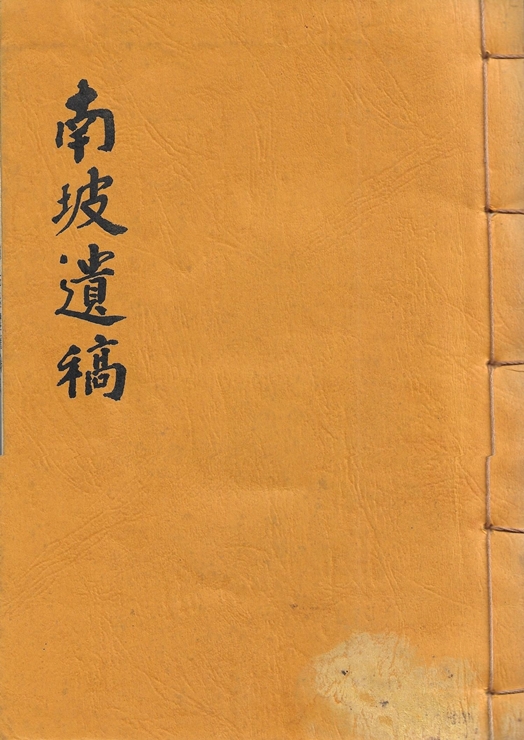 南坡遺稿